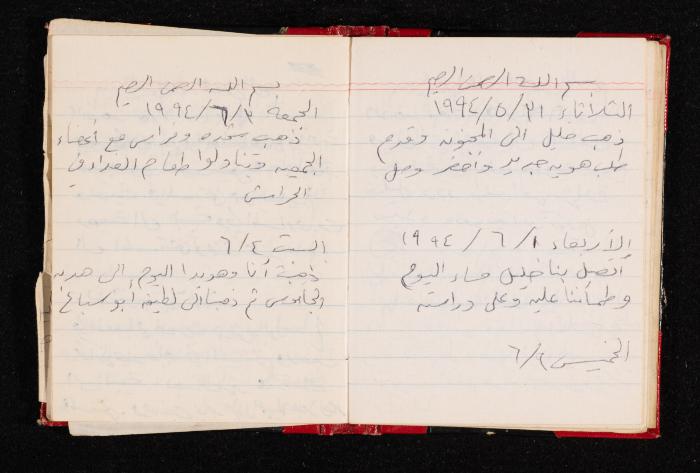 بسم الله الرحمن الرحيم
الثلاثاء ٣١/٥/١٩٩٤
ذهب خليل الى المجنونه وقدم
طلب هويه جديد وأخضر وصل
الأربعاء ١/٦/١٩٩٤
أتصل بنا خليل مساء اليوم
وطمأننا عليه وعلى دراسته
الخميس ٢/٦
بسم الله الرحمن الرحيم
الجمعة ٣/٦/١٩٩٤
ذهب سعده وفراس مع أعضاء
الجمعيه وتناولوا طعام الغداء في
الحرايش
السبت ٤/٦
ذهبت أنا وهويدا اليوم الى هديه
ثم ذهبنا الى لطيفه أبو سباع